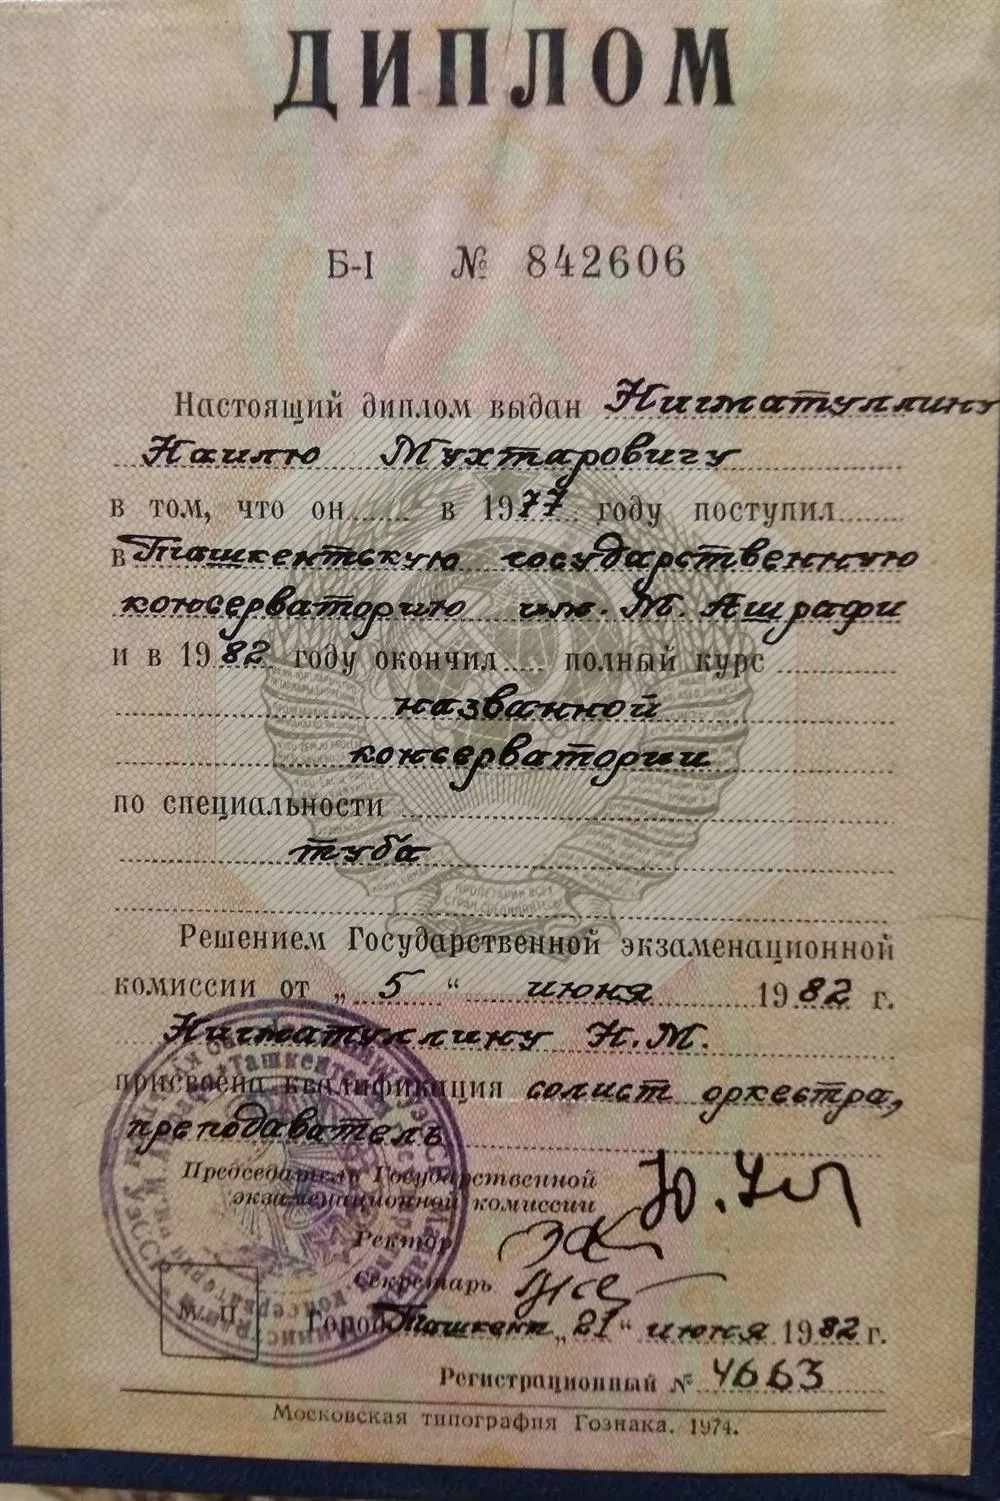 ДИПЛОМ
Б-I № 842606
Настоящий диплом выдан Нигматуллину
Наилю Мухтаровичу
в том, что он в 1977 году поступил
в Ташкентскую государственную
консерваторию им. М. Ашрафи
и в 1982 году окончил полный курс
названной
консерватории
по специальности
туба
Решением Государственной экзаменационной
комиссии от „5“ июня 1982 г.
Нигматуллину Н.М.
присвоена квалификация солист оркестра,
преподаватель
Председатель Государственной
экзаменационной комиссии
Ректор
Секретарь
М. П.
Город Ташкент „21“ июня 1982 г.
Регистрационный № 4663
Московская типография Гознака. 1974.